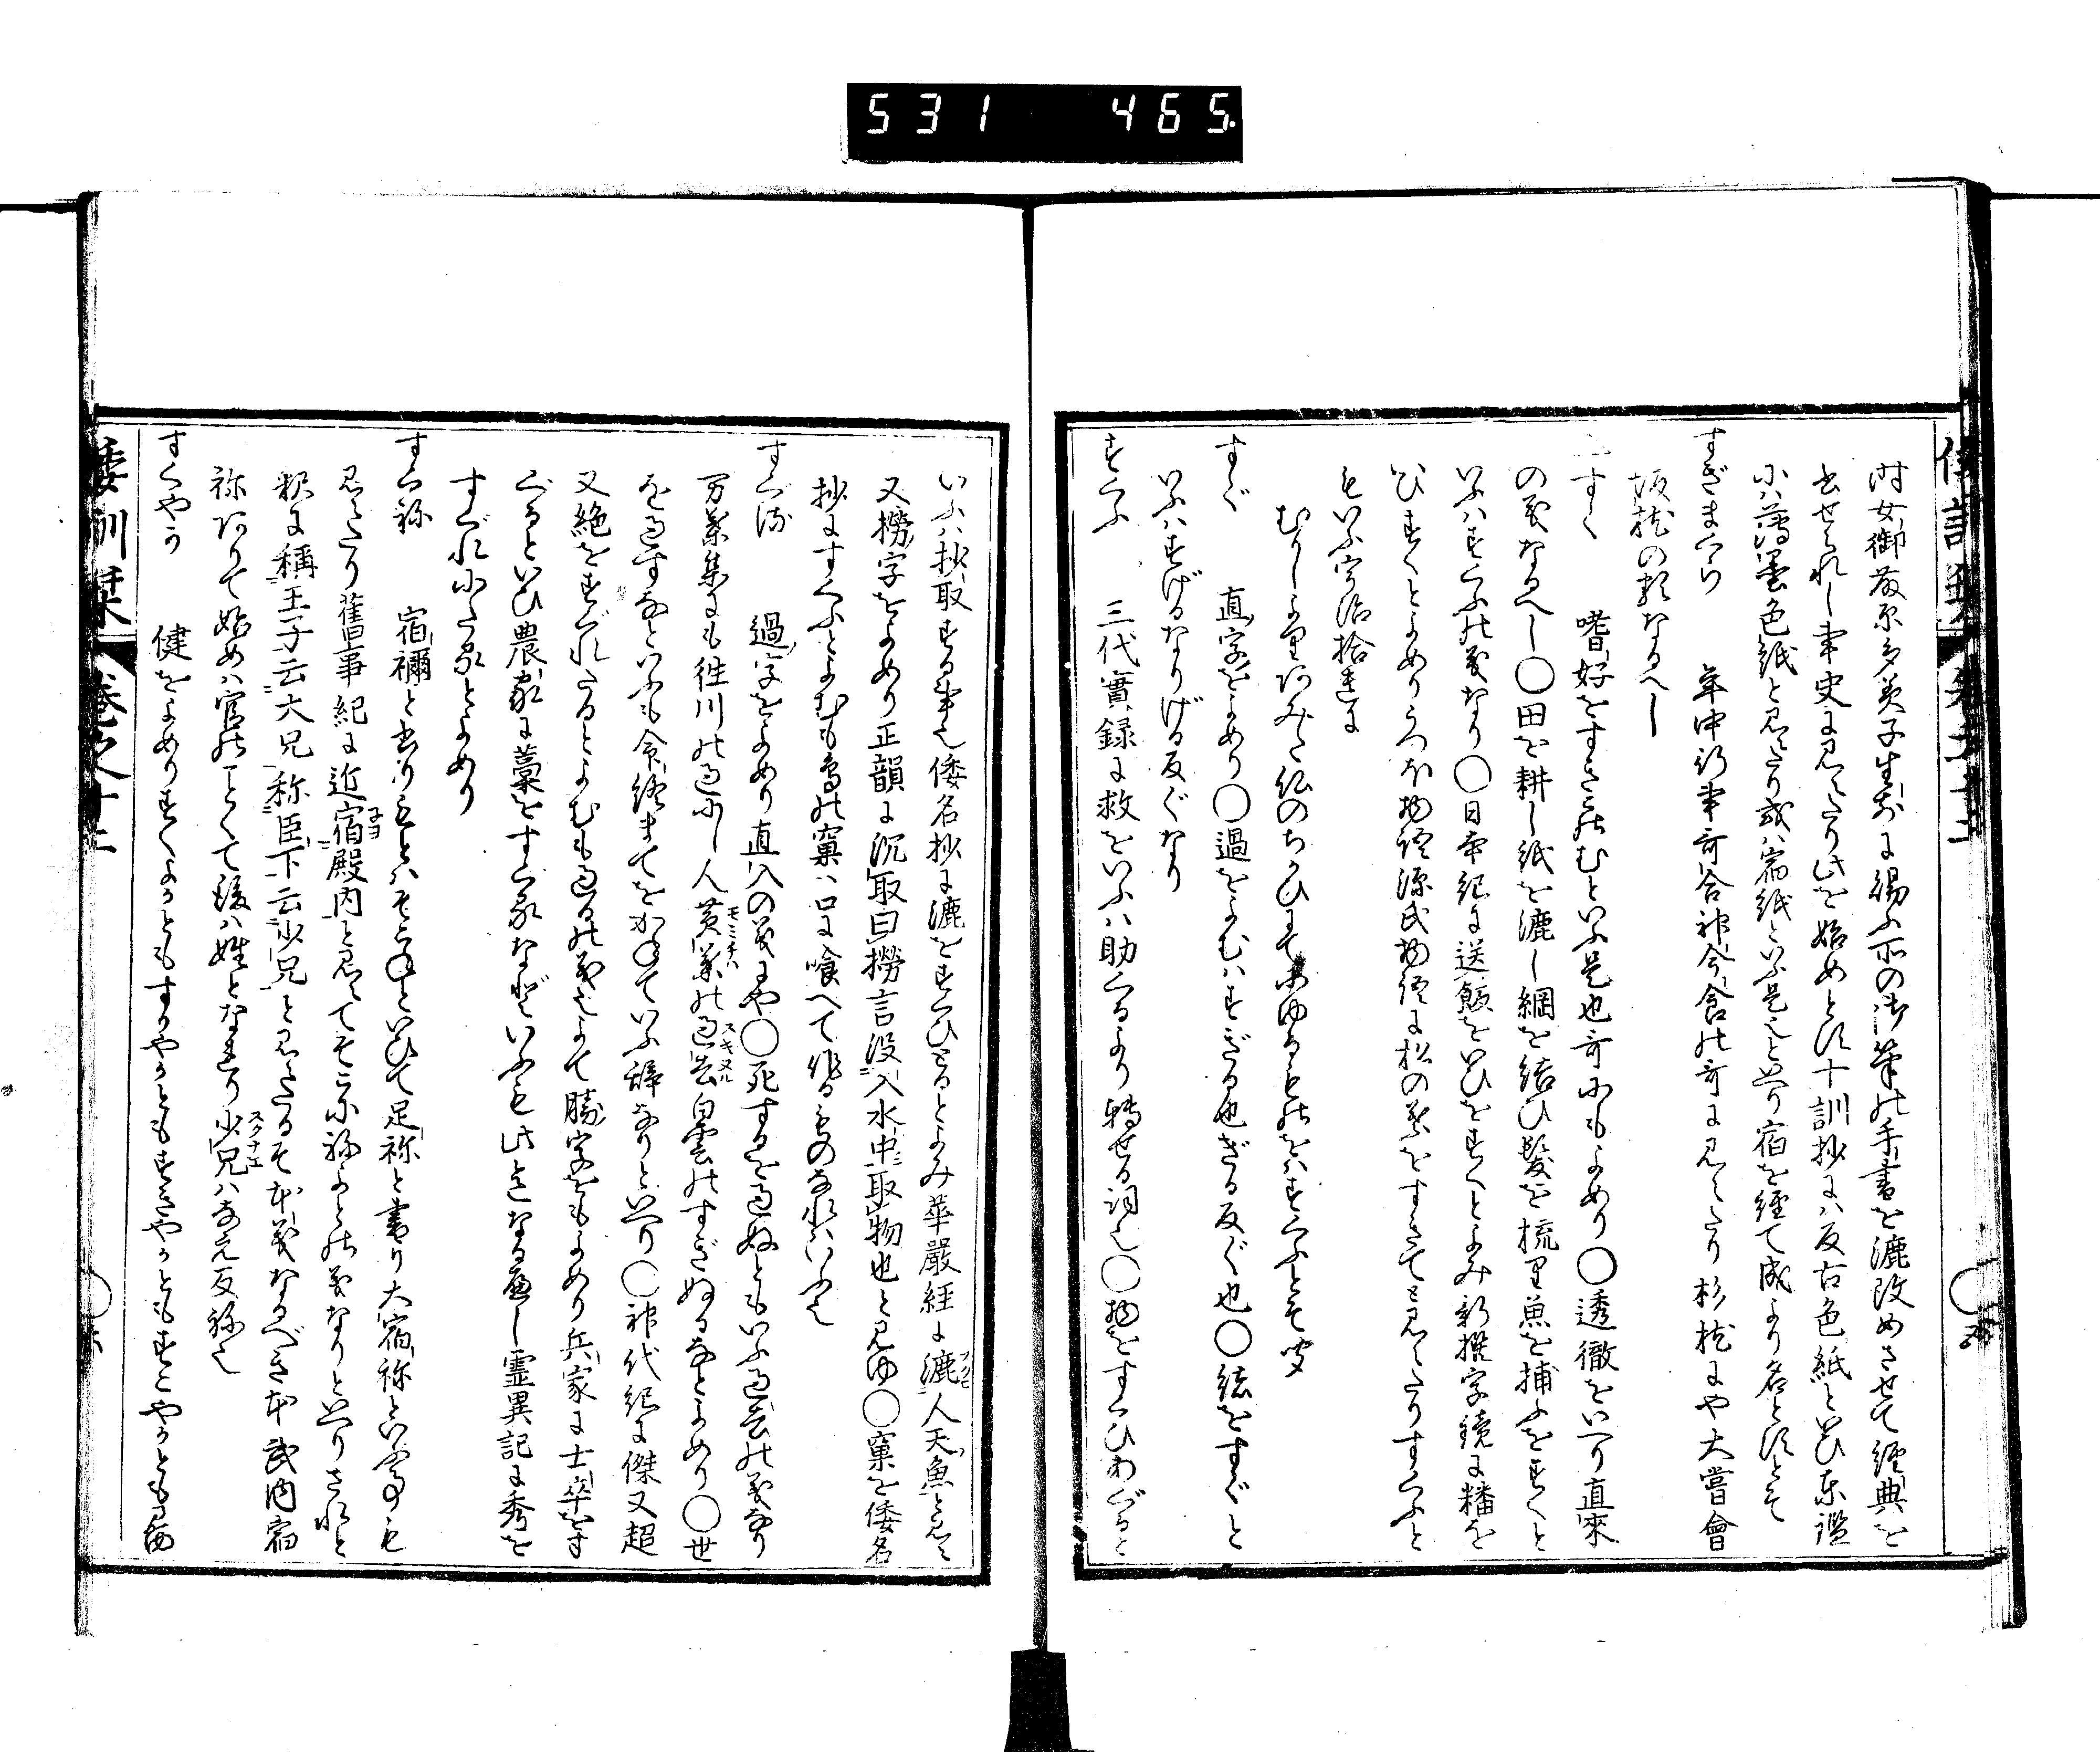 531 465
時女御藤原多美子生前に賜ふ所の御筆の手書を漉改めさせて経典を
書せられし事史に見えたり此を始めとす十訓抄に反古色紙といひ東鑑
に薄墨色紙と見えたり或ハ宿紙といふ是也といへり宿を経て成より名とすとそ
すぎまくり 年中行事哥合神今食の哥に見えたり杉枕にや大嘗會
坂枕の類なるへし
すく 嗜好をすきこのむといふ是也哥にもよめり○透徹をいへり直來
の義なるへし○田を耕し紙を漉し網を結ひ髪を梳り魚を捕ふをすくと
いふハすくふの義なり○日本紀に送飯をいひをすくとよみ新撰字鏡に糟を
いひすくとよめりうつほ物語源氏物語に松の葉をすきてと見えたりすくふと
もいふ宇治拾遺に
むかしよりあみた仏のちかひにてあゆるものをハすくふとそ聞
すぐ 直字をよめり○過をよむハすぎる也ぎる反ぐ也○結をすぐと
いふハすげるなりげる反ぐなり
すくふ 三代實録に救をいふハ助くるより轉せる詞也○物をすくひあぐると
いふハ抄取する事也倭名抄に漉をすくひとるとよみ華嚴経に漉人天魚と見え
又撈字をよめり正韻に沉取曰撈言没入水中取物也と見ゆ○窠を倭名
抄にすくふとよむも鳥の窠ハ口に喰へて作るものなれハいふ也
すぐる 過字をよめり直入の義にや○死するを過ぬともいふ過去の義なり
万葉集にも往川の過にし人黄葉の過去白雲のすぎぬるなとよめり○世
を過すなといふも命終まてをかねていふ辞なりといへり○神代紀に傑又超
又絶をすぐれたるとよむも過るの義也よて勝字をもよめり兵家に士卒をす
ぐるといひ農家に藁をすくるなどいふも此意なるへし霊異記に秀を
すぐれにたるとよめり
すくね 宿禰と書り或ハそこねといひて足祢と書り大宿祢といふ事も
見えたり舊事紀に近宿殿内と見えてそこに祢よとの義なりといへりされと
釈に稱王子云大兄称臣下云少兄と見えたるそ本義なるべき武内宿
祢ありて始めハ官の如くて後ハ姓となれり少兄ハなえ反ね也
すくやか 健をよめりすくよかともすくやかともすきやかともすこやかとも通
倭訓栞 巻之十二